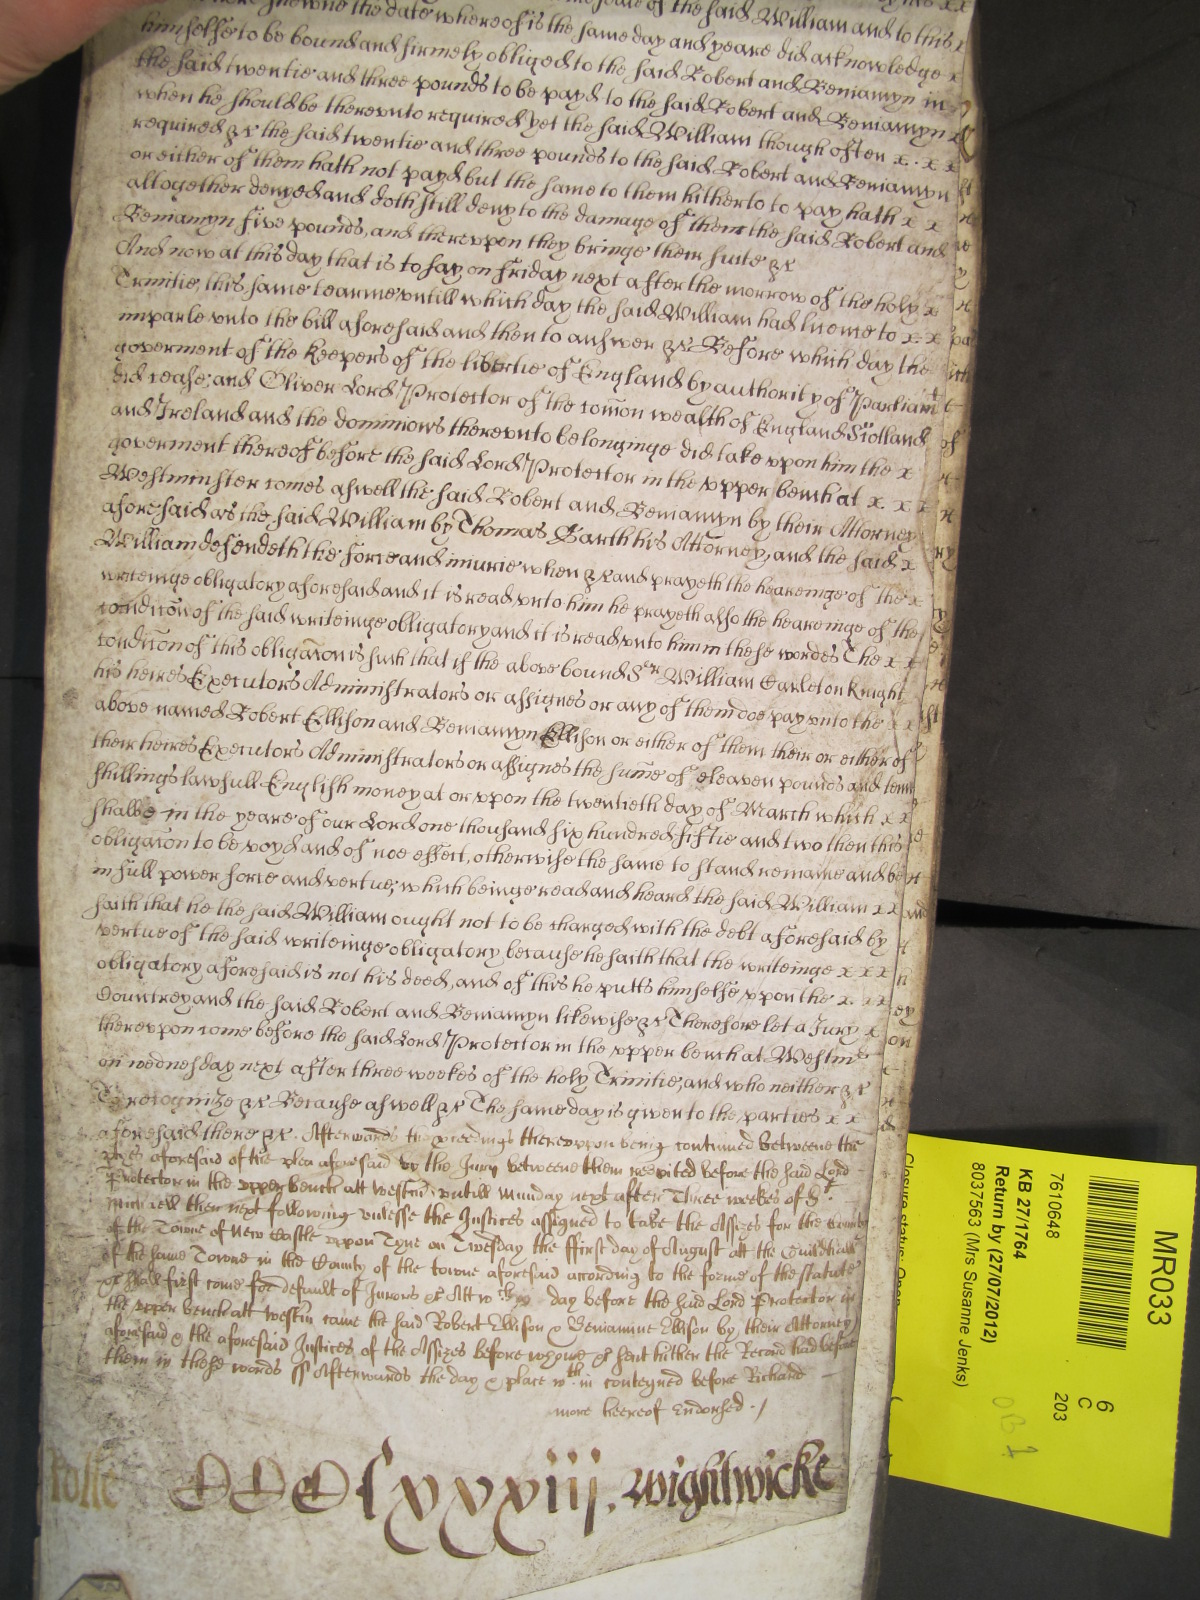 here shewne the date whereof is the same day and yeare did acknowledge x
himselfe to be bound and firmely obliged to the said Robert and Beniamyn in
the said twentie and three pounds to be payd to the said Robert and Beniamyn x
when he should be therevnto required yet the said William though often x . x x
required &c the said twentie and three pounds to the said Robert and Beniamyn
or either of them hath not payd but the same to them hitherto to pay hath x x
altogether denyed and doth still deny to the damage of them the said Robert and
Beniamyn five pounds, and therevpon they bringe their suite &c
And now at this day that is to say on Friday next after the morrow of the holy x
Trinitie, this same tearme vntill which day the said William had licence to x x
imparle vnto the bill aforesaid and then to answer &c Before which day the
goverment of the Keepers of the libertie of England by authority of Parliamt
did cease; and Oliver Lord Protector of the com̄on wealth of England Scotland
and Ireland and the dominions therevnto belonginge did take vpon him the x
goverment thereof before the said Lord Protector in the vpper bench at x x x
Westminster comes aswell the said Robert and Beniamyn by their Attorney
aforesaid as the said William by Thomas Garth his Attorney, and the said x
William defendeth the force and iniurie when &c and prayeth the heareinge of the x
writeinge obligatory aforesaid and it is read vnto him he prayeth also the heareinge of the
condic̄on of the said writeinge obligatory and it is read vnto him in these wordes The x x
condic̄on of this obligac̄on is such that if the above bound Sr William Carleton Knight
his heires Executors Administrators or assignes or any of them doe pay vnto the x x
above named Robert Ellison and Beniamyn Ellison or either of them their or either of
their heires Executors Administrators or assignes the sum̄e of eleaven pounds and tenn
shillings lawfull English money at or vpon the twentieth day of March which x x
shalbe in the yeare of our Lord one thousand six hundred fiftie and two then this
obligac̄on to be voyd and of noe effect, otherwise the same to stand remaine and be
in full power force and vertue; which beinge read and heard the said William x x
saith that he the said William ought not to be charged with the debt aforesaid by
vertue of the said writeinge obligatory because he saith that the writeinge x x x
obligatory aforesaid is not his deed, and of this he putts himselfe vpon the x . x x
Countrey and the said Robert and Beniamyn likewise &c Therefore let a Jury x
therevpon come before the said Lord Protector in the vpper bench at Westmr
on wednesday next after three weekes of the holy Trinitie, and who neither &c
To recognize &c Because aswell &c The same day is given to the parties x x
aforesaid there &c. Afterwards the p'ceedings therevpon being continued betweene the
p'ties aforesaid of the plea aforesaid by the Jury betweene them respited before the said Lord
Protector in the vpper bench att Westm̄ vntill Munday next after Three weekes of St
Michaell then next following vnlesse the Justices assigned to take the Assizes for the County
of the Towne of New Castle vpon Tyne on Twesday the ffirst day of August att the Guildhall
of the same Towne in the County of the towne aforesaid according to the forme of the statute
&c shall first come for default of Jurors &c Att wch day before the said Lord Protector in
the vpper bench att Westm̄ came the said Robert Ellison & Beniamine Ellison by their Attorney
aforesaid & the aforesaid Justices of the Assizes before whome &c sent hither the Record had before
them in these words ss Afterwards the day & place wth in conteyned before Richard
more heereof Endorsed
CCClxxxiij. Wightwicke
MR033
6
C
203
7610648
KB 27/1764
Return by (27/07/2012)
8037563 (Mrs Susanne Jenks)
Closure status: Open